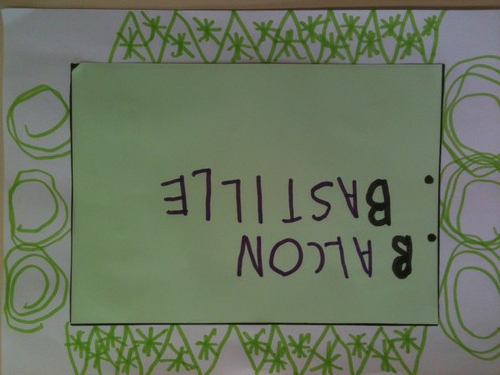 • BALCON
• BASTILLE